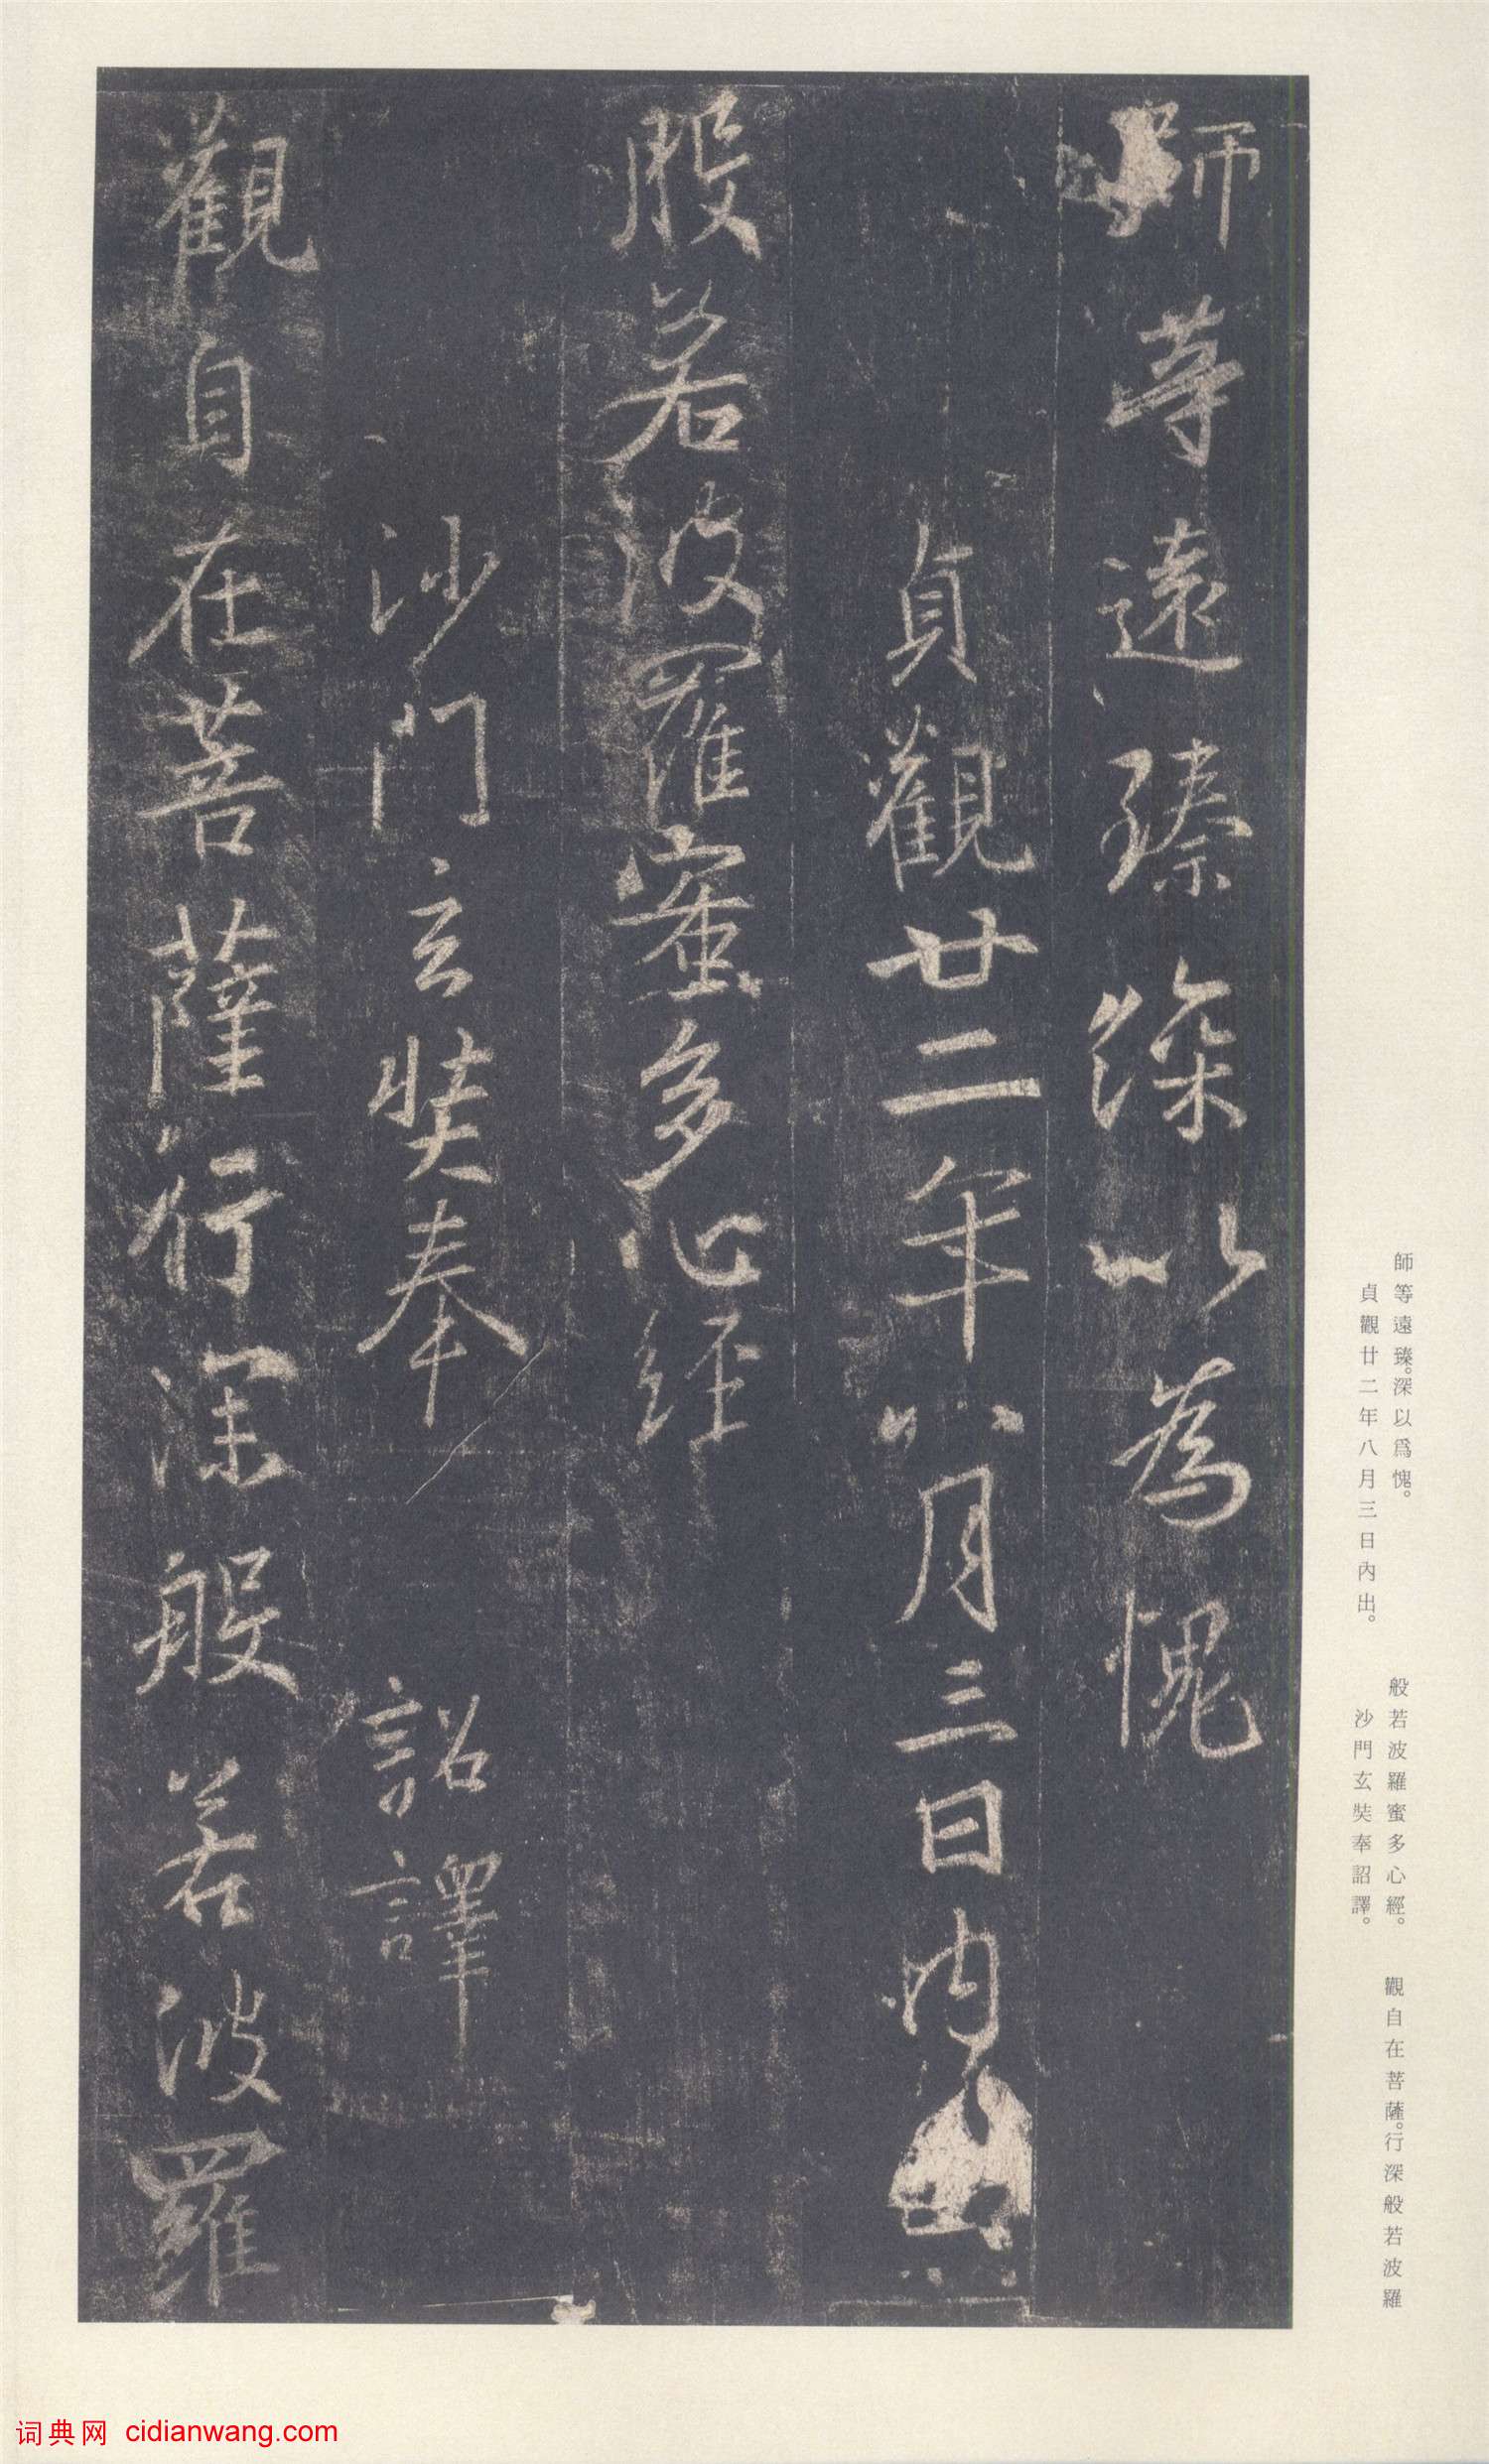 師等遠臻深以為愧
貞觀廿二年八月三日內出
般若波羅蜜多心經
沙門玄奘奉 詔譯
觀自在菩薩行深般若波羅
師等遠臻。深以爲愧。
貞觀廿二年八月三日內出。
般若波羅蜜多心經。
沙門玄奘奉詔譯。
觀自在菩薩。行深般若波羅
词典网 cidianwang.com